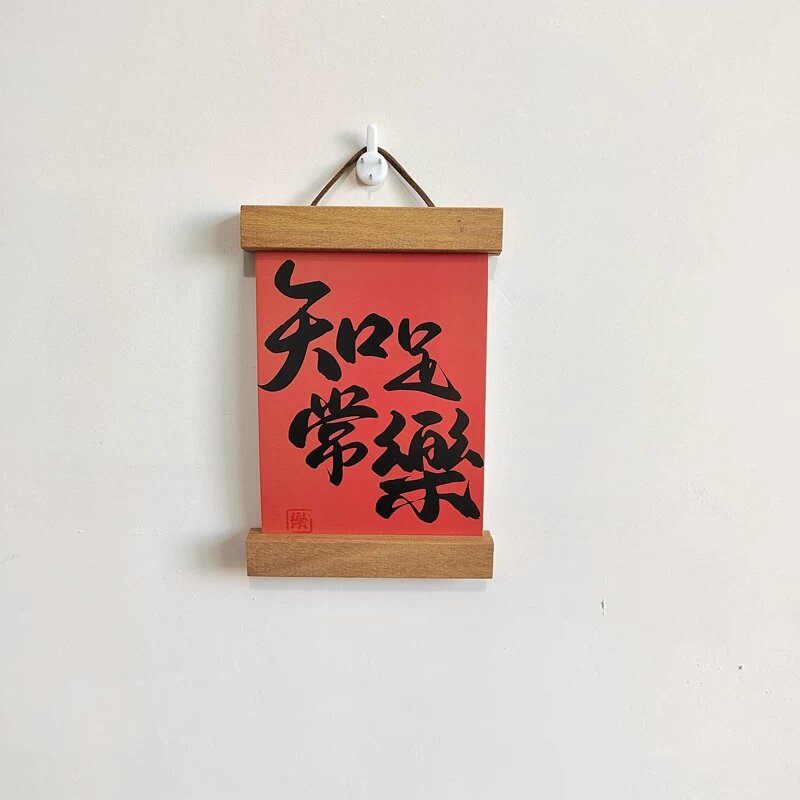 知足
常樂
樂